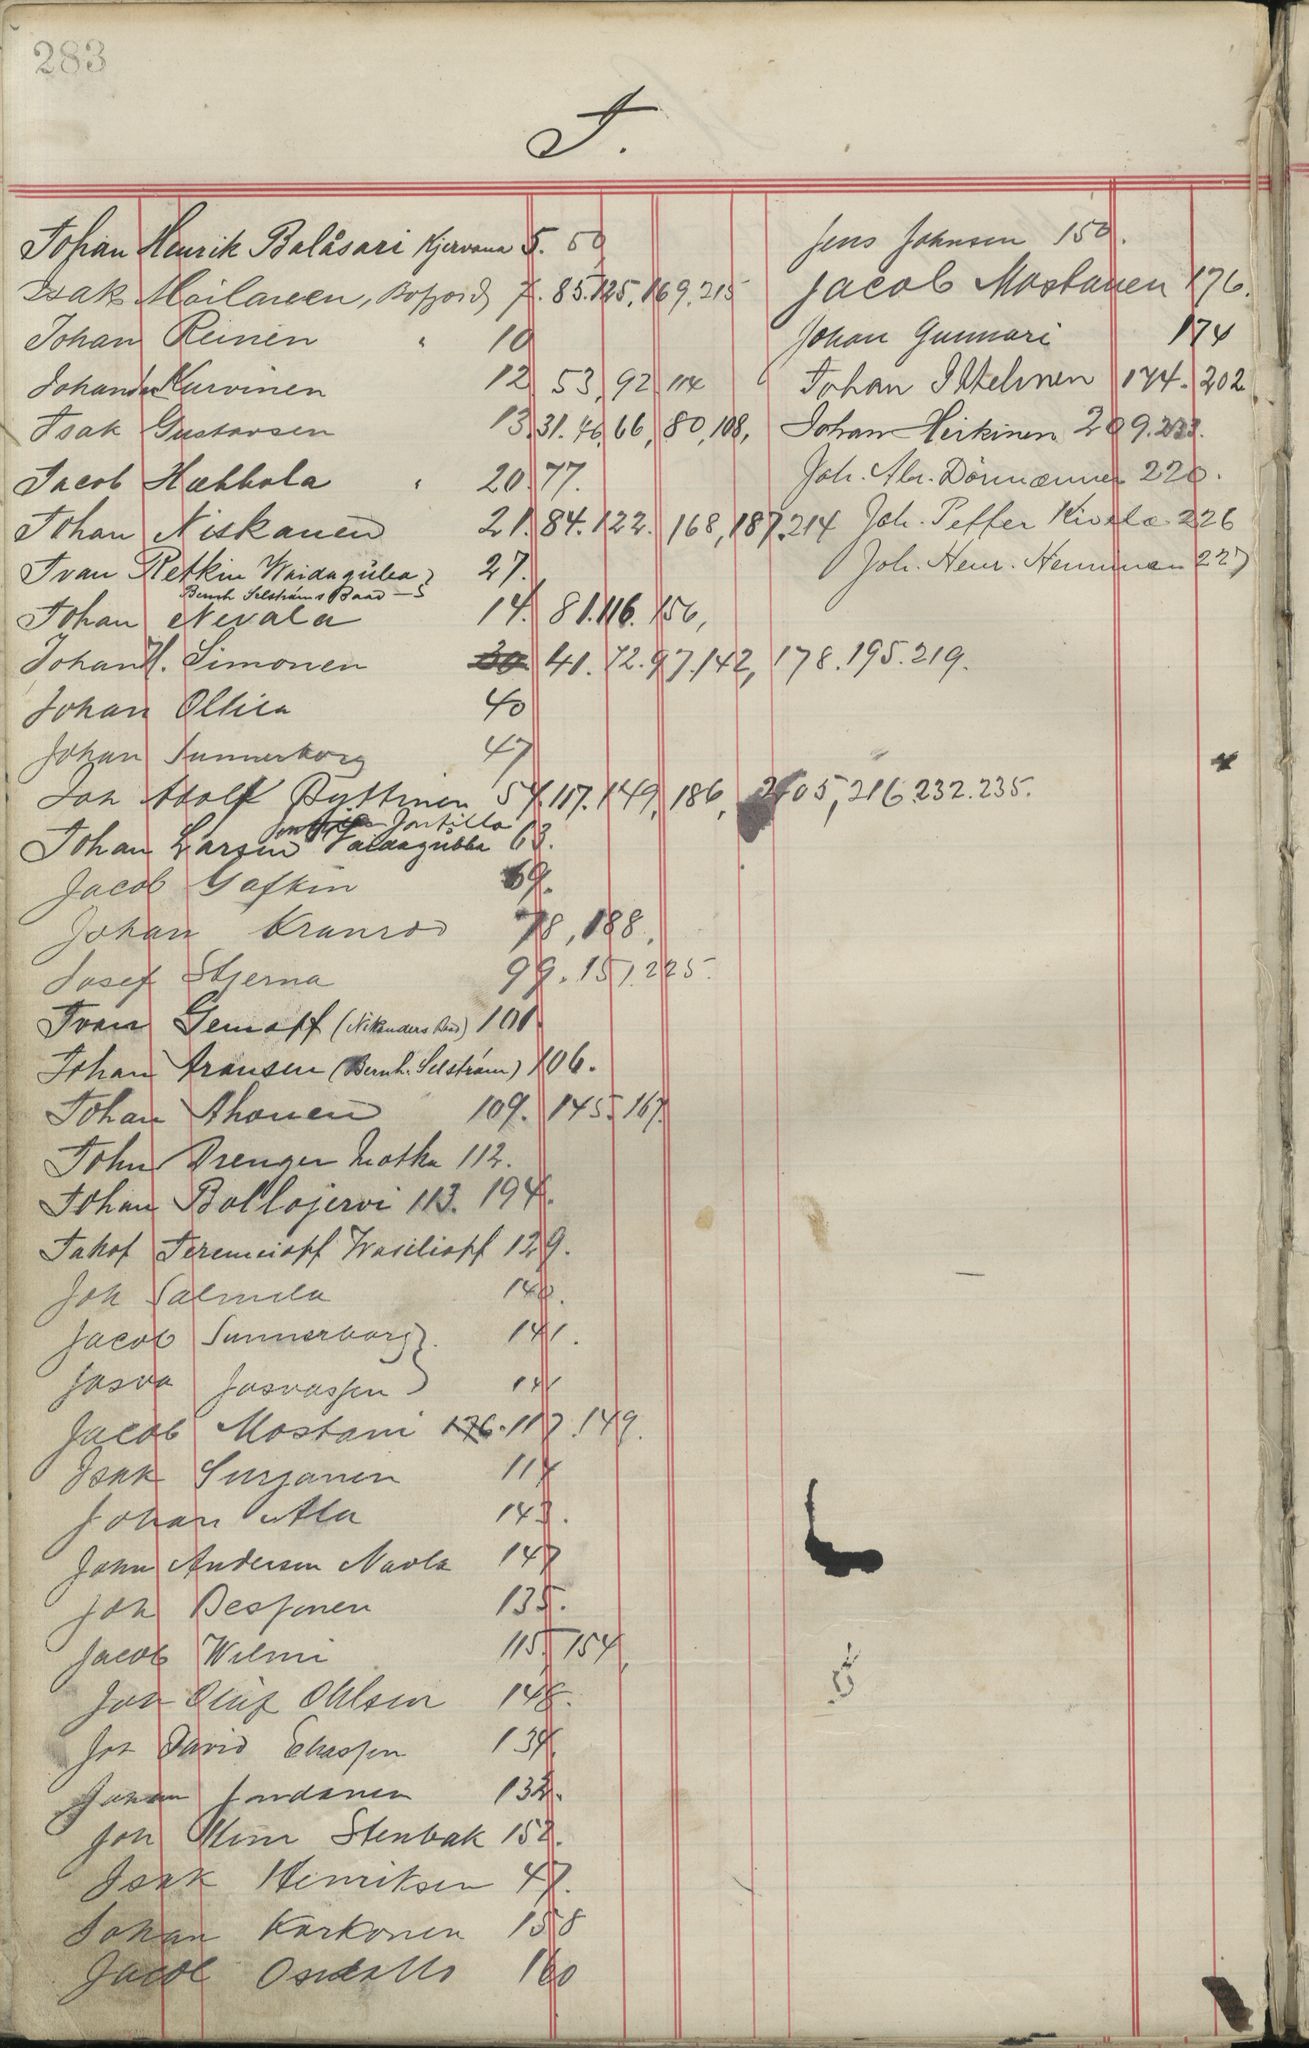 283
J.
Johan Henrik Balåsari Kjervana 5. 50,
Isak Moilaneen, Bofjord, 7. 85. 125, 169. 215
Johan Reinen " 10
Johan Kurvinen 12. 53, 92. 114
Isak Gustavsen 13. 31. 46, 66, 80, 108,
Jacob Hukkola " 20. 77.
Johan Niskanen 21. 84. 122. 168, 187. 214
Ivan Retkin Waidagubba 27.
Bernh Selströms Baad
Johan Nevala 14. 81. 116. 156,
Johan H. Simonen 30 41. 72. 97. 142, 178. 195. 219.
Johan Ollila 40
Johan Sunnerborg 47
Joh Adolf Pyttinen 54. 117. 149, 186, 205, 216. 232. 235.
Jontilla
Johan Larsen Vaidagubba 63.
Jacob Gafkin 69.
Johan Kranrod 78, 188,
Josef Stjerna 99. 151. 225.
Ivan Genoff (Nikanders Baad) 101.
Johan Aronsen (Bernh. Selström) 106.
Johan Ahonen 109. 145. 167.
John Drenger Motka 112.
Johan Bollojervi 113. 194.
Jakof Jeremeioff Wasilioff 129.
Joh Salmela 140.
Jacob Sunnerborg 141.
Josva Josvassen 141
Jacob Mostani 176. 117. 149.
Isak Surjanen 114
Johan Ala 143.
John Andersen Navla 147
Joh Desjonen 135.
Jacob Wilmi 115, 154,
Joh Oluf Ohlsen 148.
Joh David Eliassen 134.
Johan Jordanen 132.
Joh Wim Stenbak 152.
Isak Henriksen 47.
Johan Korkonen 158
Jacob 160
Jens Johnsen 150.
Jacob Mostanen 176.
Johan Gunnari 174
Johan Ittelmen 174. 202
Johan Heikinen 209. 233.
Joh. Abr. Dörmænnen 220.
Joh. Petter Kivela 226
Joh. Henr. Henninen 227